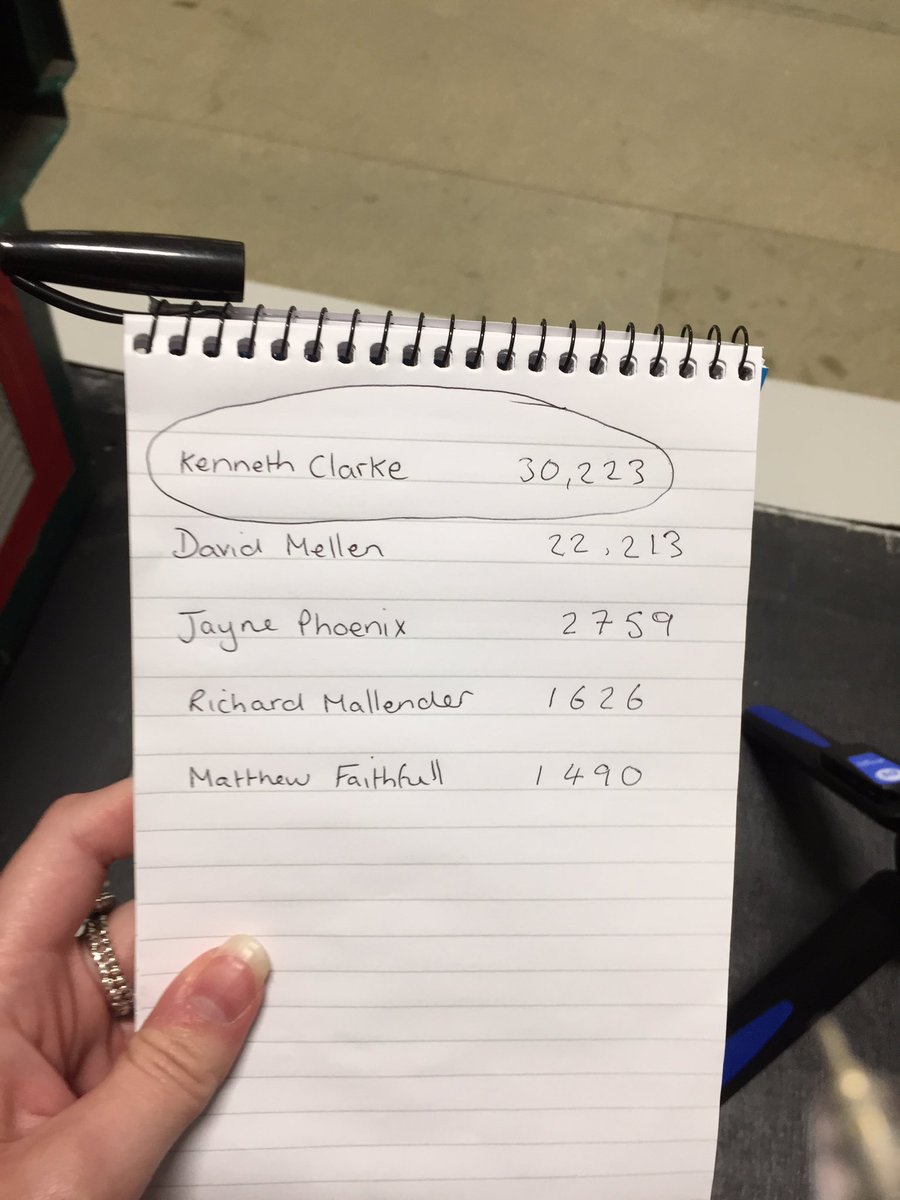 Kenneth Clarke 30,223
David Mellen 22,213
Jayne Phoenix 2759
Richard Mallender 1626
Matthew Faithfull 1490